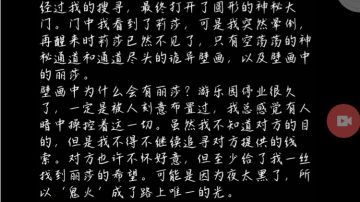 经过我的搜寻，最终打开了圆形的神秘大
门。门中我看到了莉莎，可是我突然晕倒，
再醒来时莉莎已然不见了，只有空荡荡的神
秘通道和通道尽头的诡异壁画，以及壁画中
的丽莎。
壁画中为什么会有莉莎？游乐园停业很久
了，一定是被人刻意布置过，我总感觉有人
暗中操控着这一切。虽然我不知道对方的目
的，但是我不得不继续追寻对方提供的线
索。对方也许不怀好意，但至少给了我一丝
找到丽莎的希望。可能是因为夜太黑了，所
以‘鬼火’成了路上唯一的光。